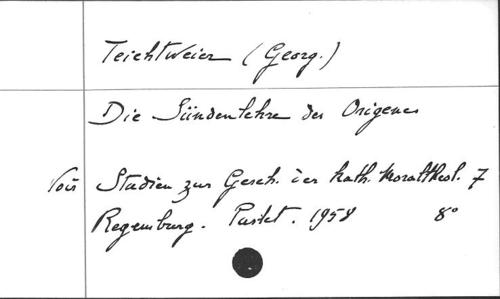 Teichtweier (Georg.)
Die Sündenlehre des Origenes
Voir Studien zur Gesch. der kath. Moraltheol. 7
Regensburg. Pustet. 1958 8°